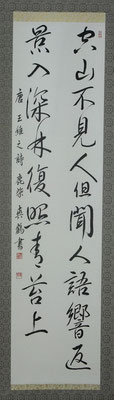 空山不見人但聞人語響返
景入深林復照青苔上
唐王維之詩鹿柴 奐鶴書